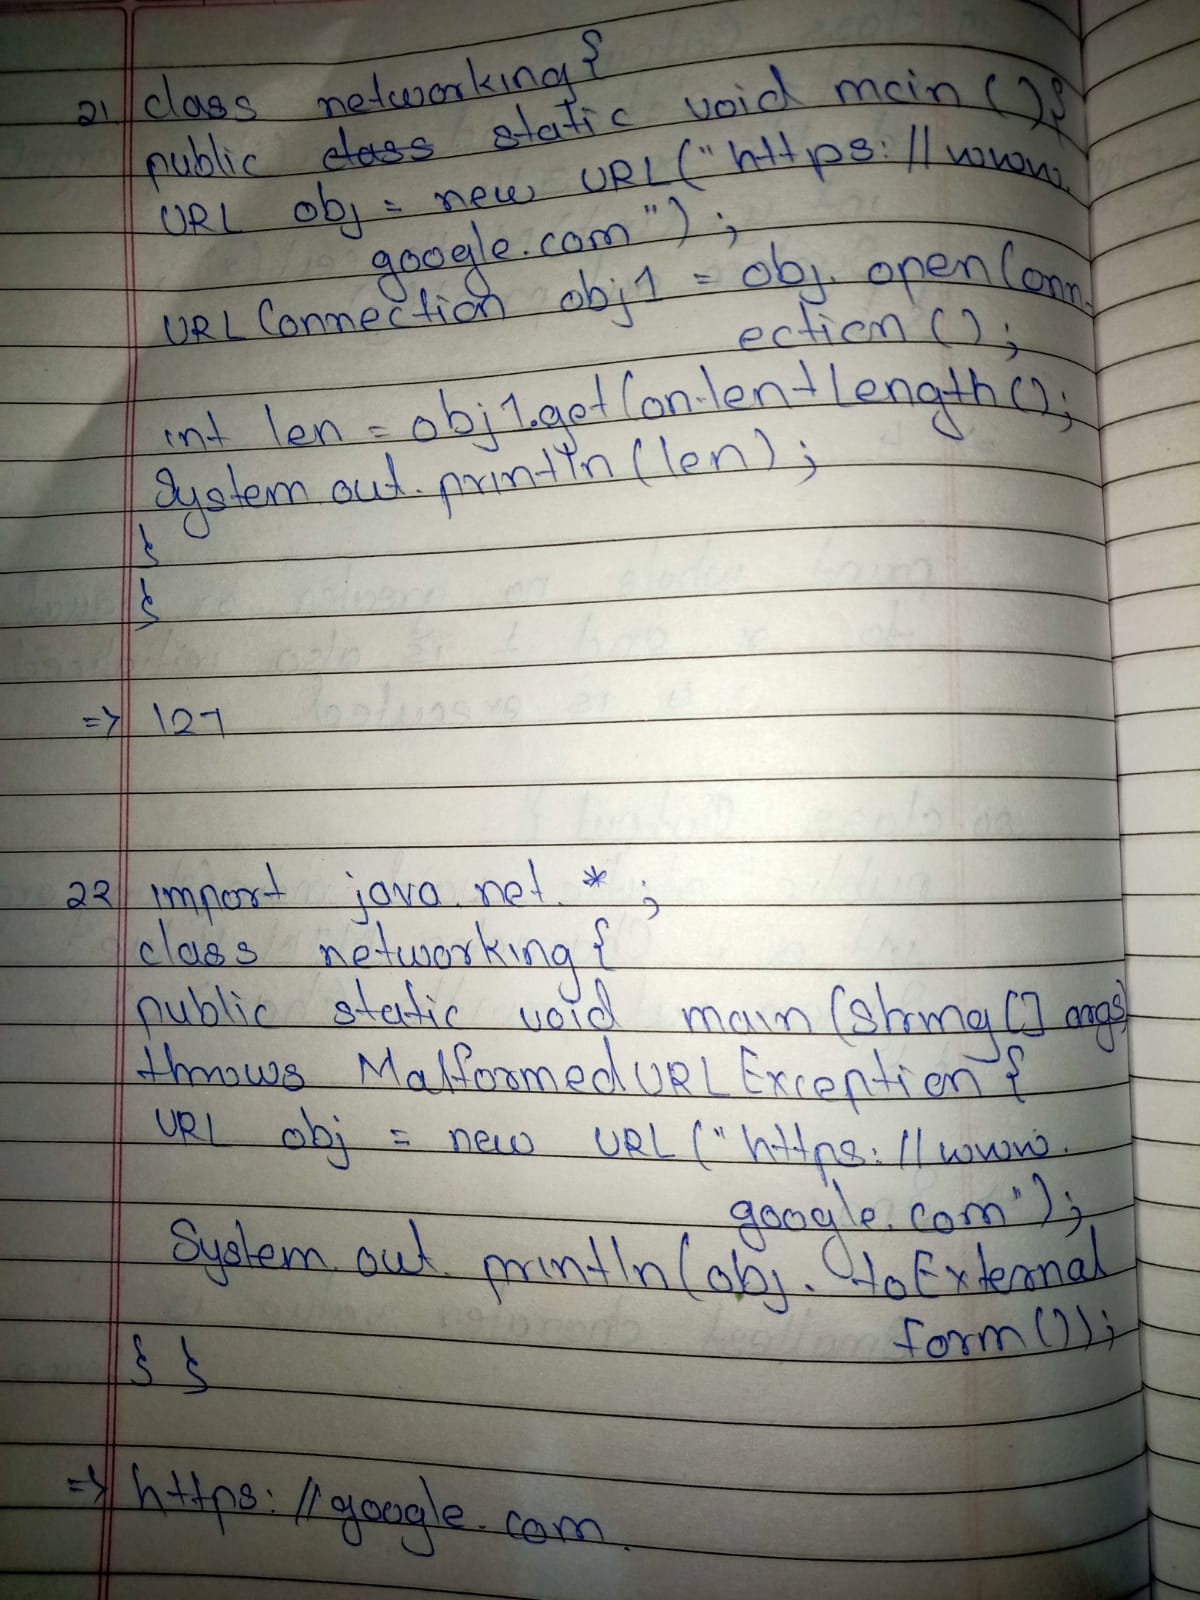 21. class networking{
public static void main(){
URL obj = new URL("https://www.
google.com");
URLConnection obj1 = obj.openConn-
ection();
int len = obj1.getContentLength();
System.out.println(len);
}
}
=> 127
22 import java.net.*;
class networking{
public static void main(String[] args)
throws MalformedURLException{
URL obj = new URL("https://www.
google.com");
System.out.println(obj.toExternal
form());
} }
=> https://google.com.